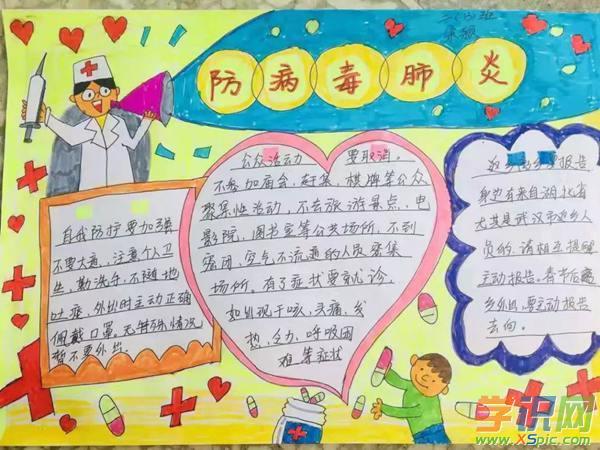 二(5)班
防病毒肺炎
自我防护要加强
不要大意,注意个人卫
生,勤洗手,不随地
吐痰,外出时主动正确
佩戴口罩,无特殊情况
暂不要外出。
公众活动 要取消。
不参加庙会,赶集,棋牌等公众
聚集性活动,不去旅游景点,电
影院,图书室等公共场所,不到
密闭,空气不流通的人员密集
场所,有了症状要就诊,
如出现干咳,头痛,发
热,乏力、呼吸困
难等症状
返乡出乡要报告
身边有来自湖北省
尤其是武汉市返乡人
员的,请相互提醒
主动报告。春节后离
乡外出,要主动报告
去向。
学识网
www.XSpic.com